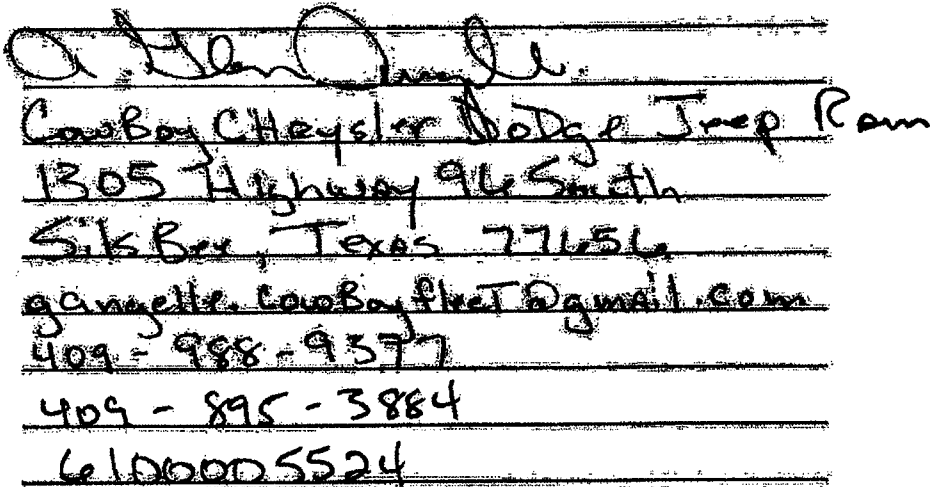 Glen
CowBoy CHrysler DoDge Jeep Ram
1305 Highway 96 South
SilsBee, Texas 77656
gangelle.cowBoyfleeT@gmail.com
409-988-9377
409-895-3884
610005524